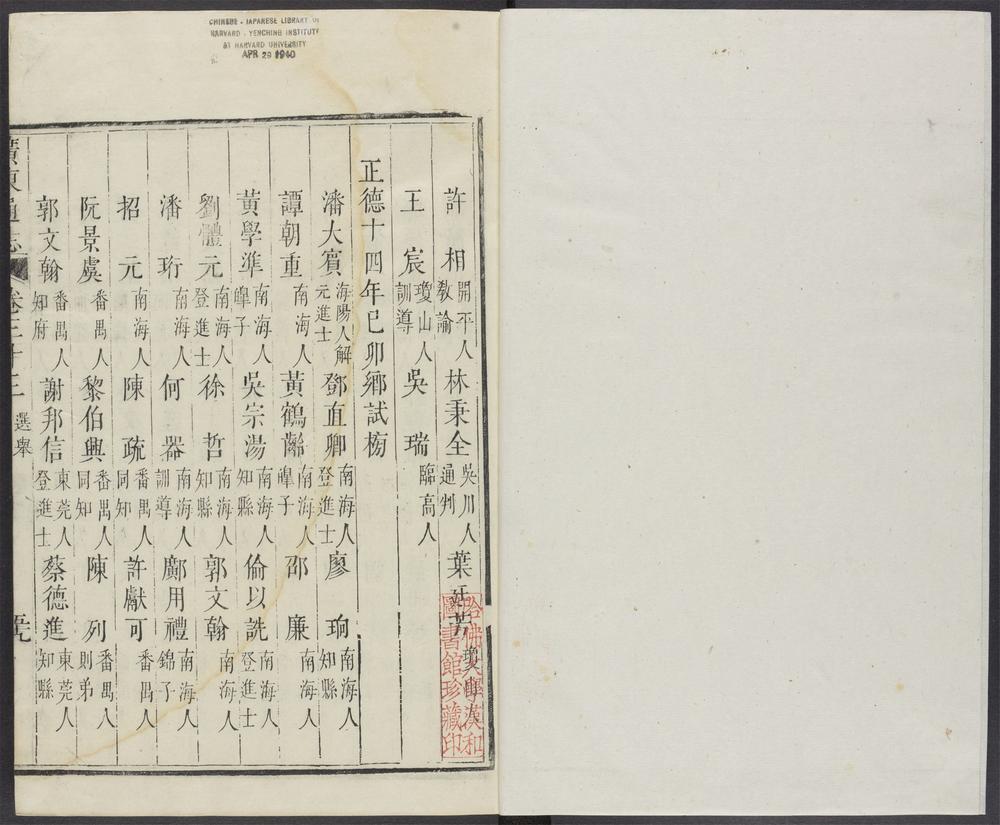 CHINESE - JAPANESE LIBRARY OF
HARVARD - YENCHING INSTITUTE
AT HARVARD UNIVERSITY
APR 29 1940
許相開平人教諭 林秉全吳川人通判 葉廷芳瓊山
王宸瓊山人訓導 吳瑞臨高人
正德十四年己卯鄉試榜
潘大賓海陽人解元進士 鄧直卿南海人登進士 廖珦南海人知縣
譚朝重南海人 黃鶴齡南海人皥子 邵廉南海人
黃學準南海人皥子 吳宗湯南海人知縣 倫以詵南海人登進士
劉體元南海人登進士 徐哲南海人知縣 郭文翰南海人
潘珩南海人 何器南海人訓導 鄺用禮南海人錦子
招元南海人 陳疏番禺人同知 許獻可番禺人
阮景虞番禺人 黎伯興番禺人同知 陳列番禺人則弟
郭文翰番禺人知府 謝邦信東莞人登進士 蔡德進東莞人知縣
廣東通志 卷三十三 選舉
哈佛大學漢和
圖書館珍藏印